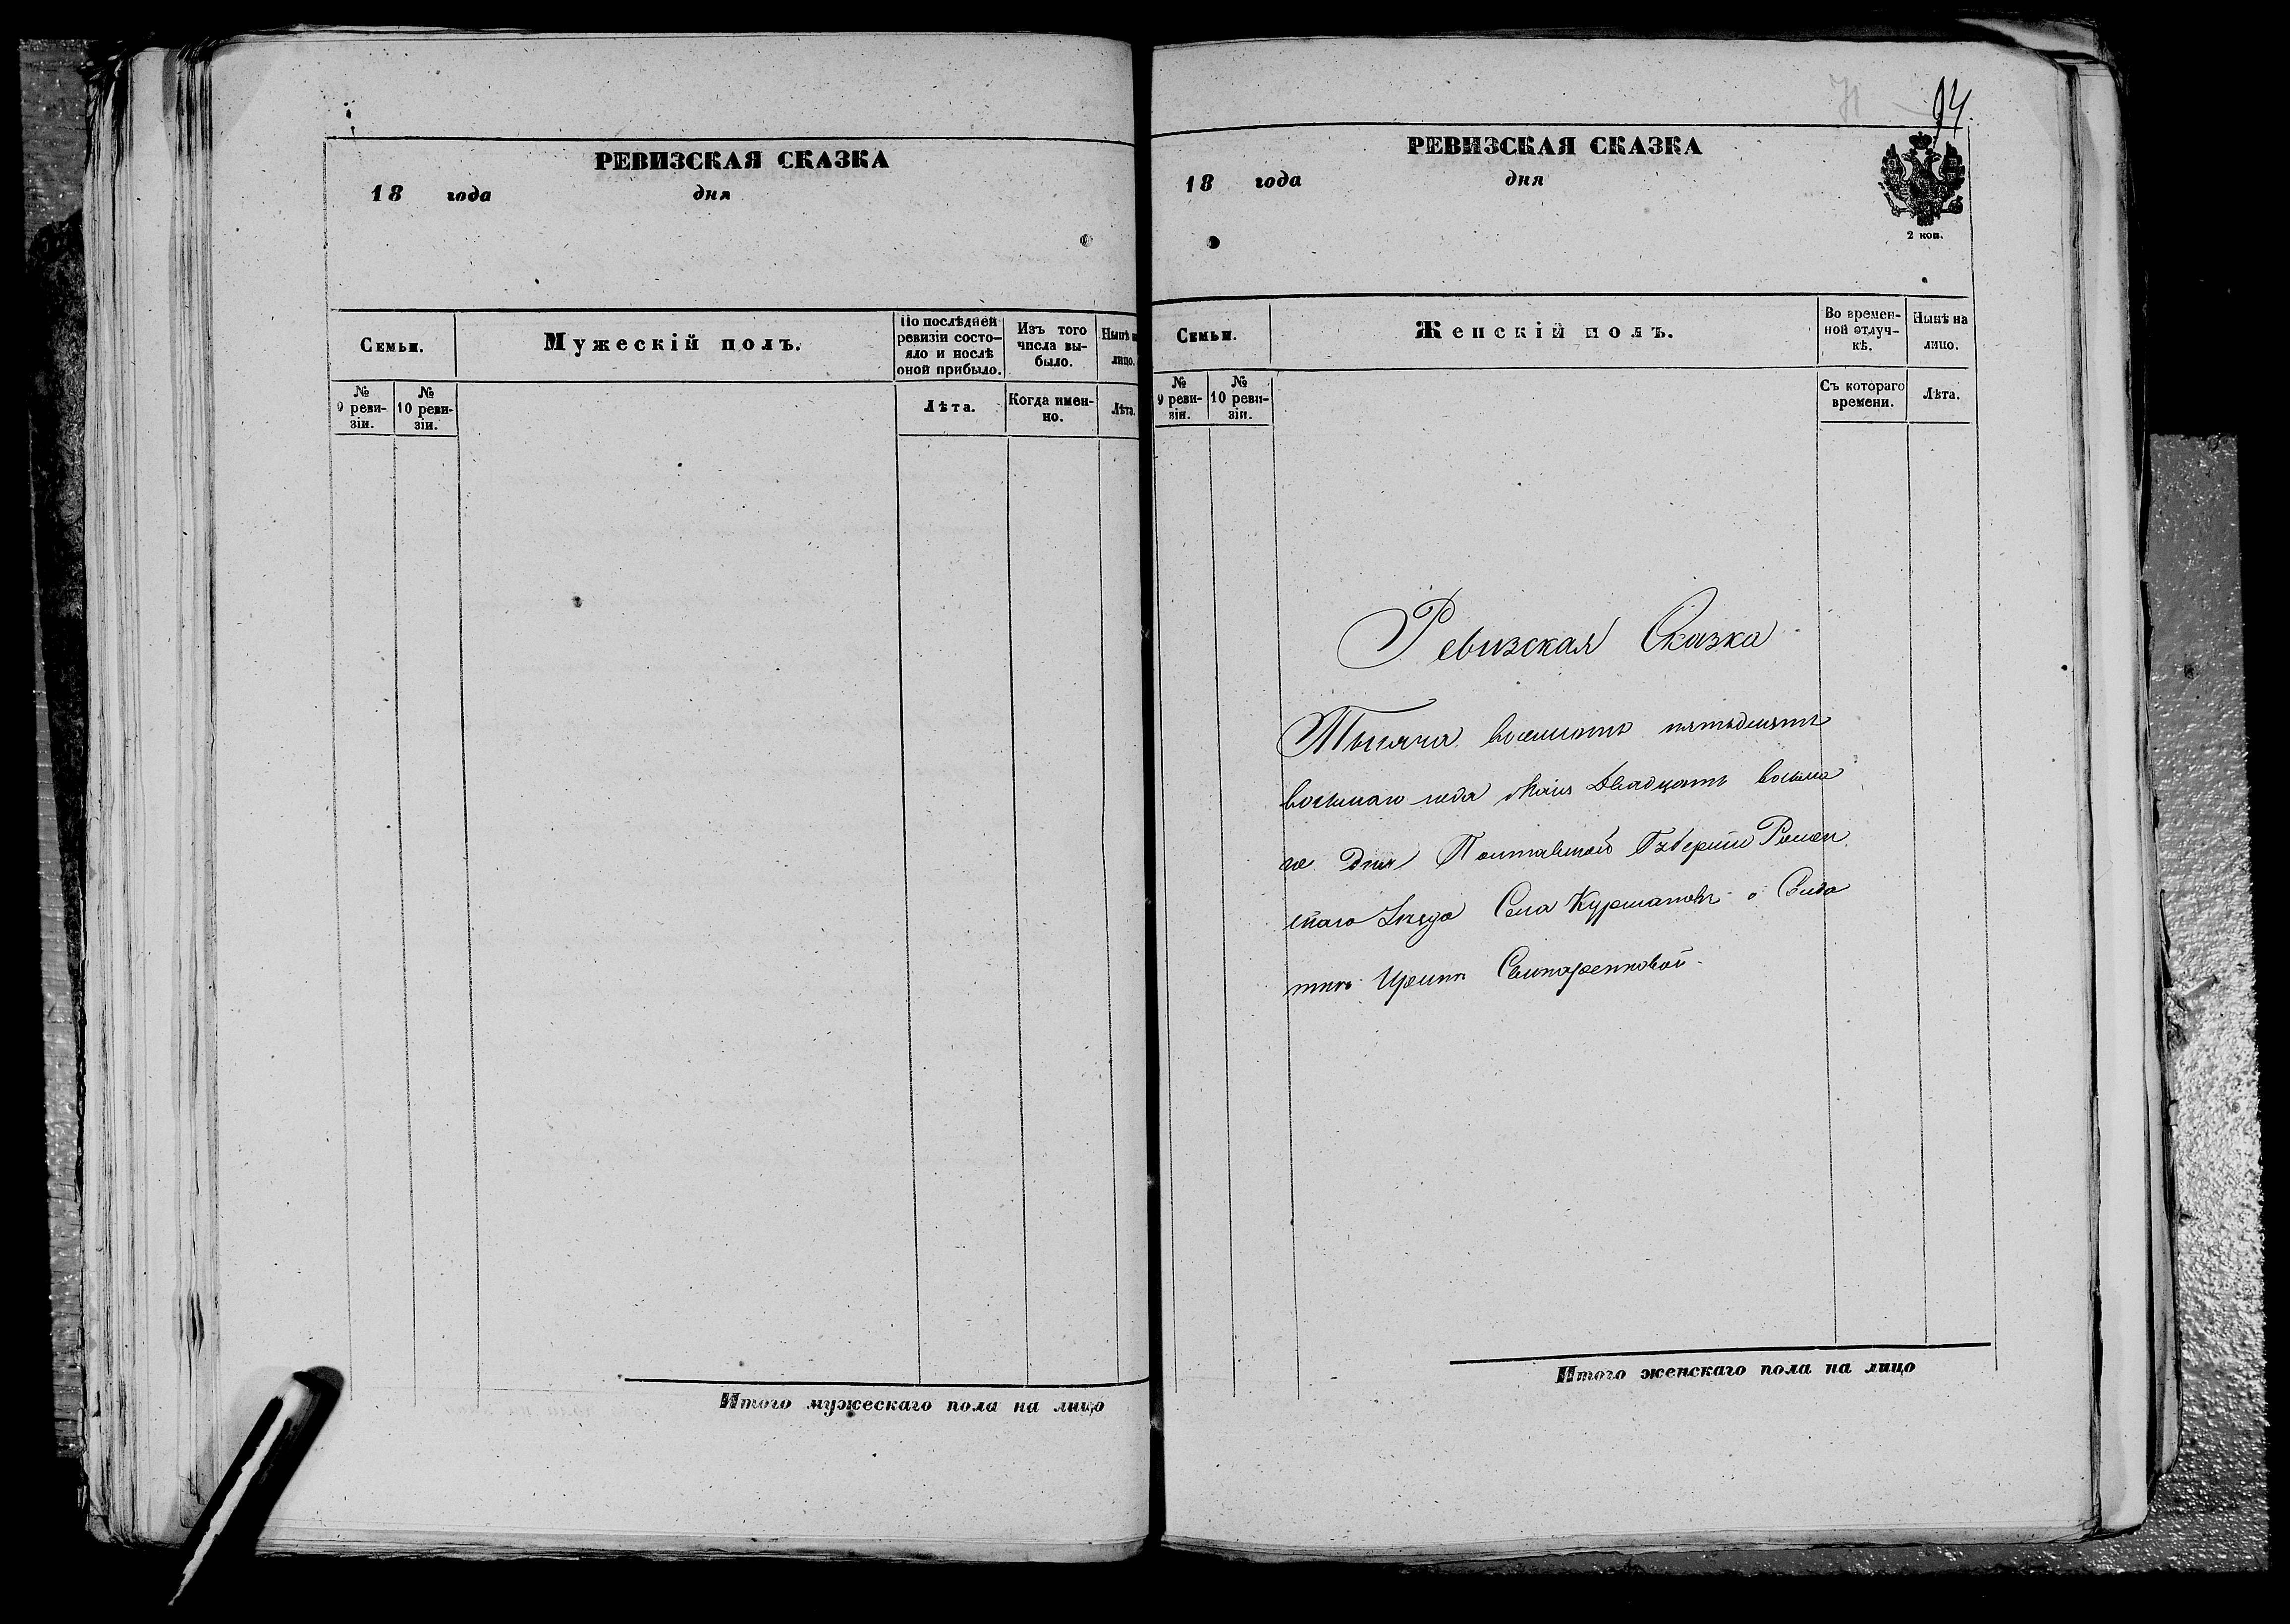 РЕВИЗСКАЯ СКАЗКА
18 года дня
Семьи.
Мужескій полъ.
По послѣдней ревизіи состо-яло и послѣ оной прибыло.
Изъ того числа вы-было.
Нынѣ на лицо.
№ 9 реви-зіи.
№ 10 реви-зіи.
Лѣта.
Когда имен-но.
Лѣта.
Итого мужескаго пола на лицо
94.
РЕВИЗСКАЯ СКАЗКА
18 года дня
2 коп.
Семьи.
Женскій полъ.
Во времен-ной отлуч-кѣ.
Нынѣ на лицо.
№ 9 реви-зіи.
№ 10 реви-зіи.
Съ котораго времени.
Лѣта.
Ревизская Сказка
Тысяча восемсотъ пятьдесятъ
восьмаго года Маія Двадцать восьма
го Дня Полтавской Губерніи Ромен
скаго Уезда Села о Солда
тки
Итого женскаго пола на лицо